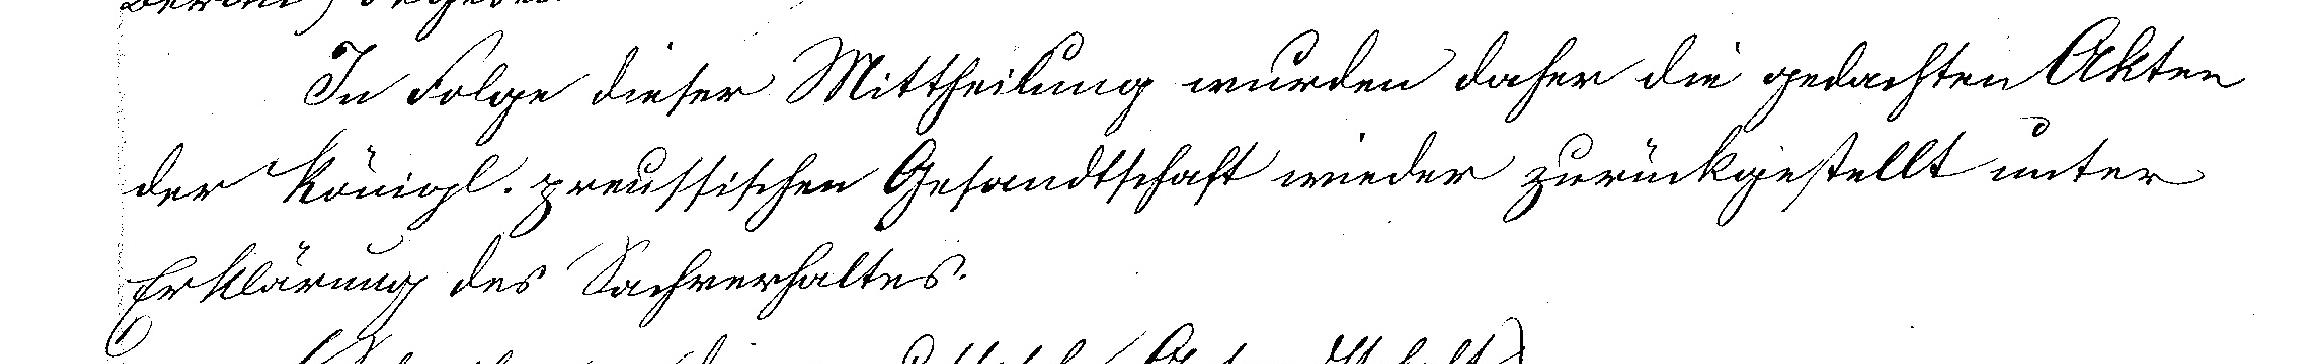 In Folge dieser Mittheilung wurden daher die gedachten Akten
der Königl. preussischen Gesandtschaft wieder zurückgestellt unter
Erklärung des Sachverhaltes.